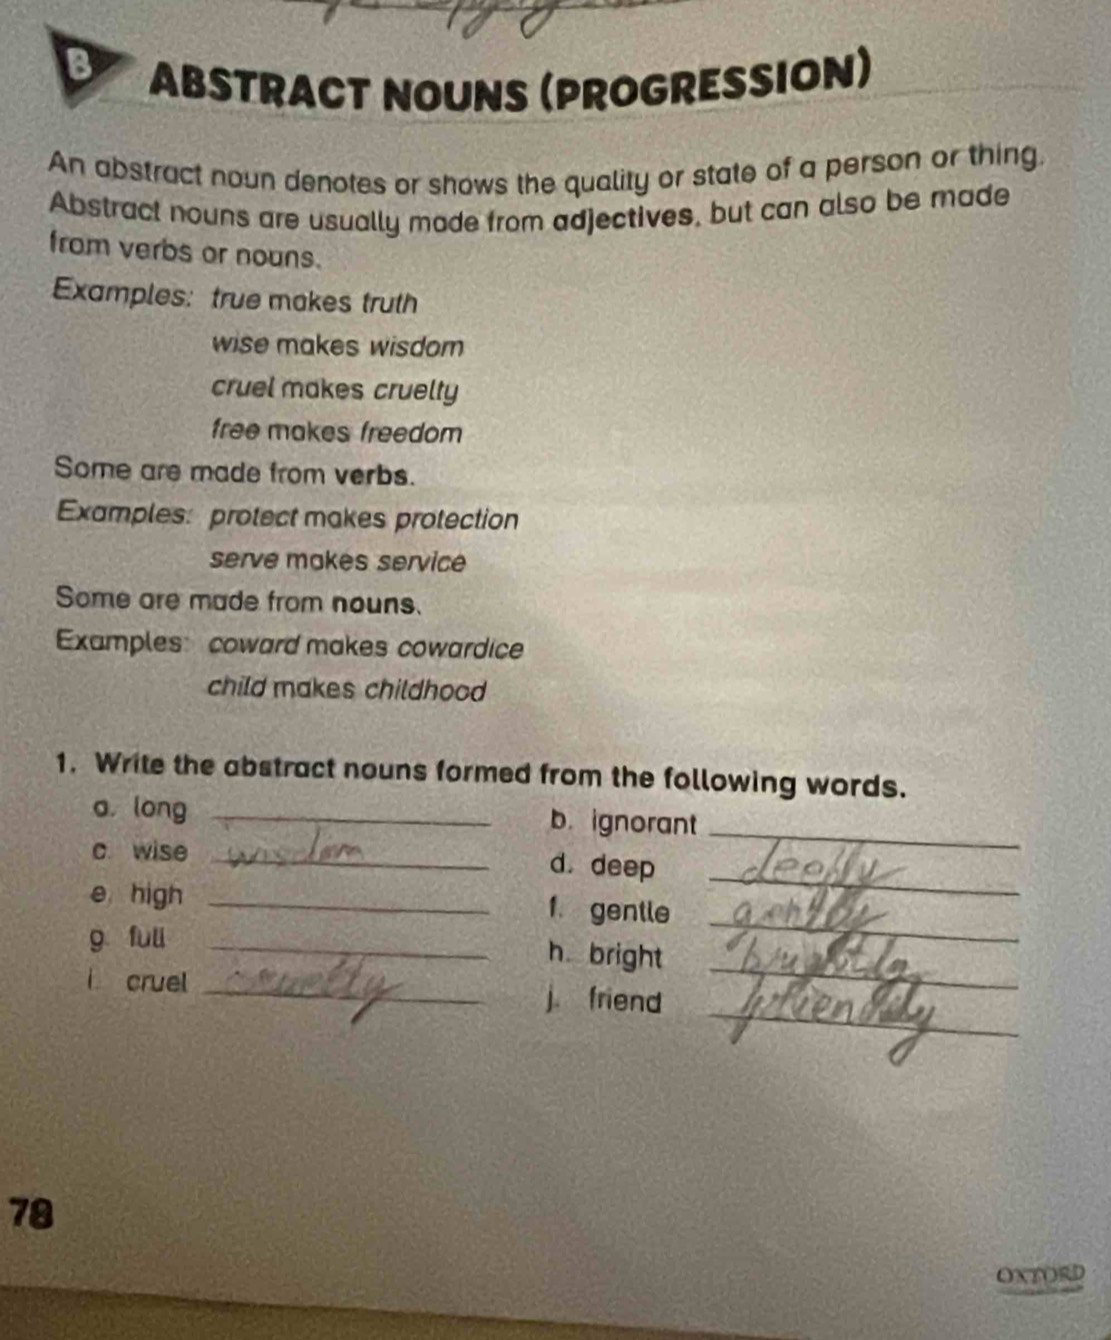 B ABSTRACT NOUNS (PROGRESSION)
An abstract noun denotes or shows the quality or state of a person or thing.
Abstract nouns are usually made from adjectives, but can also be made
from verbs or nouns.
Examples: true makes truth
wise makes wisdom
cruel makes cruelty
free makes freedom
Some are made from verbs.
Examples: protect makes protection
serve makes service
Some are made from nouns.
Examples: coward makes cowardice
child makes childhood
1. Write the abstract nouns formed from the following words.
a. long b. ignorant
c. wise wisdom d. deep deeply
e. high f. gentle gently
g. full h. bright brightly
i. cruel cruelty j. friend friendly
78
OXFORD